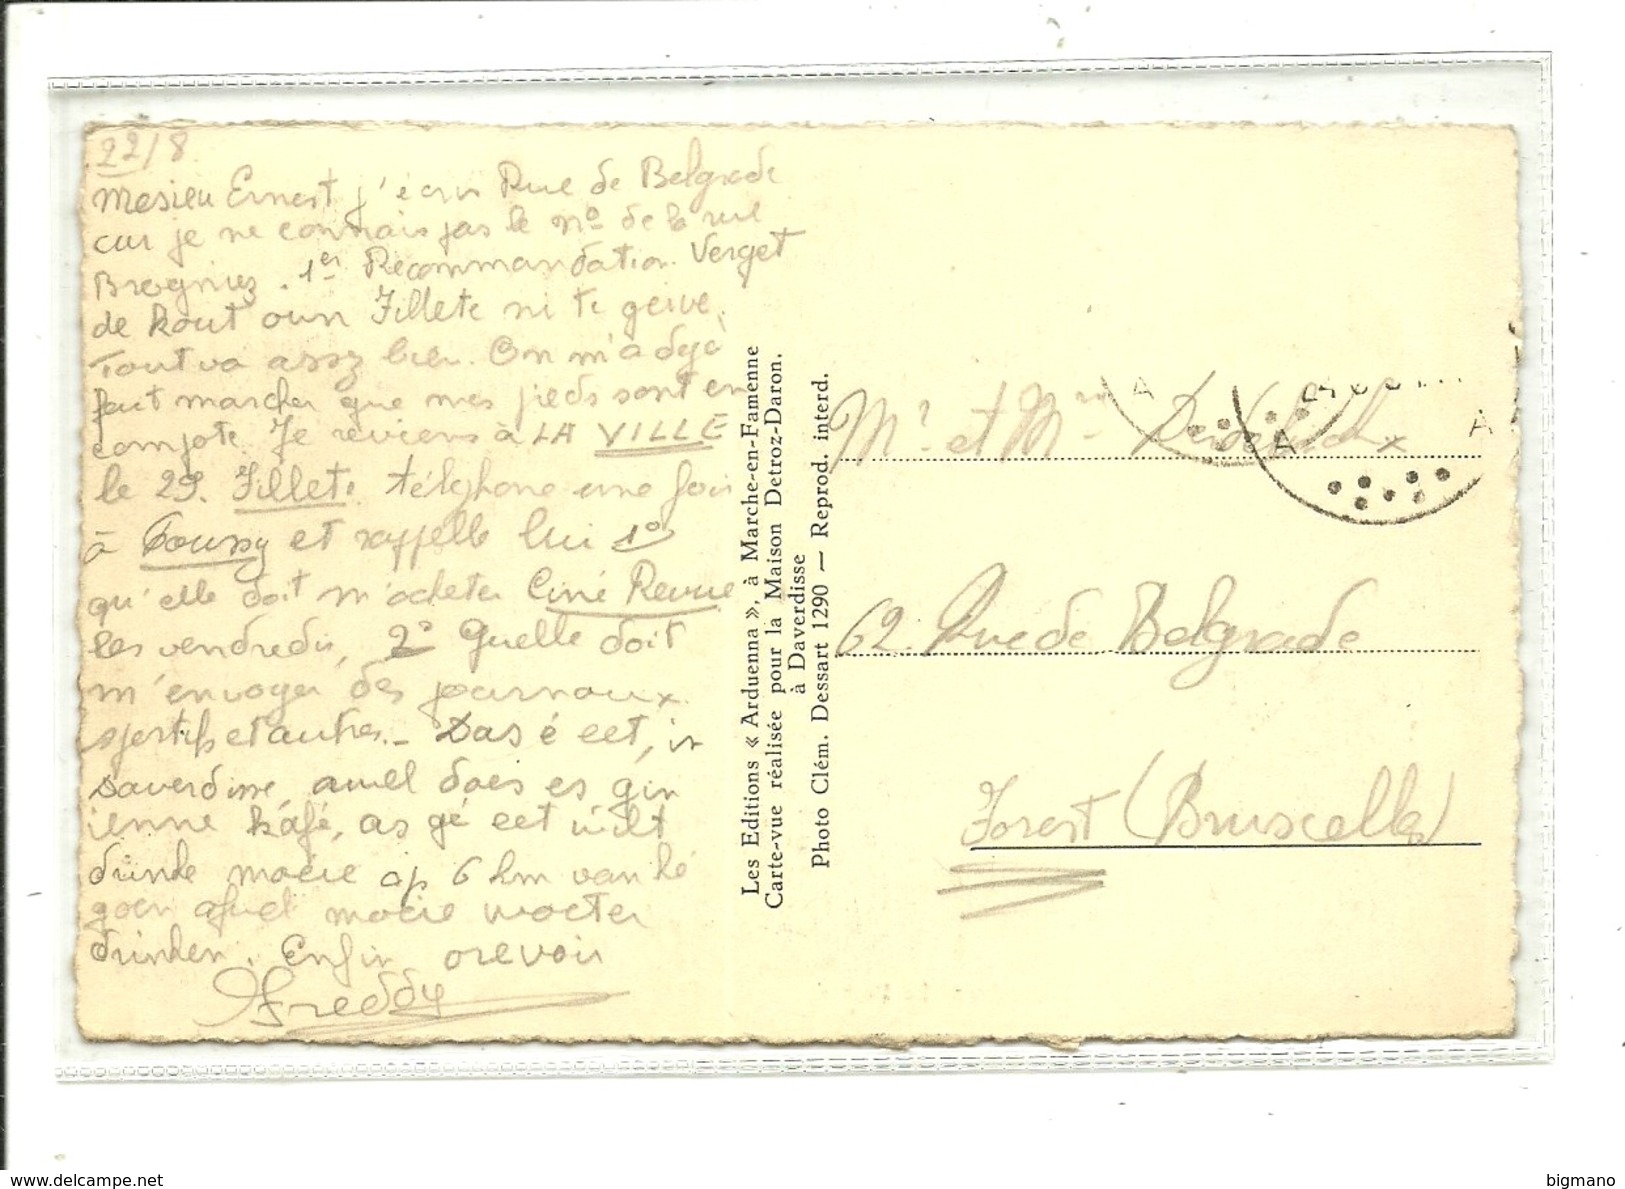 22/8
Mesieu Ernest j'écris Rue de Belgrade
car je ne connais pas le nº de la rue
Brogniez. 1er Recommandation. Verget
de kout oun Fillete ni te geive.
Tout va assz bien. On m'a déjà
fait marcher que mes pieds sont en
compote. Je reviens à LA VILLE
le 29. Fillete téléphone une fois
à Poussy et rappelle lui 1º
qu'elle doit m'acheter Ciné Revue
les vendredis, 2º Quelle doit
m'envoyer des journaux
sportifs et autres. - Das é eet, in
Daverdisse, amel does es gin
ienne kafé, as gé eet wilt
drinke moeie op 6 km van hé
goen afuel moeie wocter
drinken. Enfin orevoir
Freddy
Les Editions « Arduenna », à Marche-en-Famenne
Carte-vue réalisée pour la Maison Detroz-Daron.
à Daverdisse
Photo Clém. Dessart 1290 — Reprod. interd.
A A A
Mr et Mme
62. Rue de Belgrade
Forest (Bruxelles)
delcampe.net
bigmano